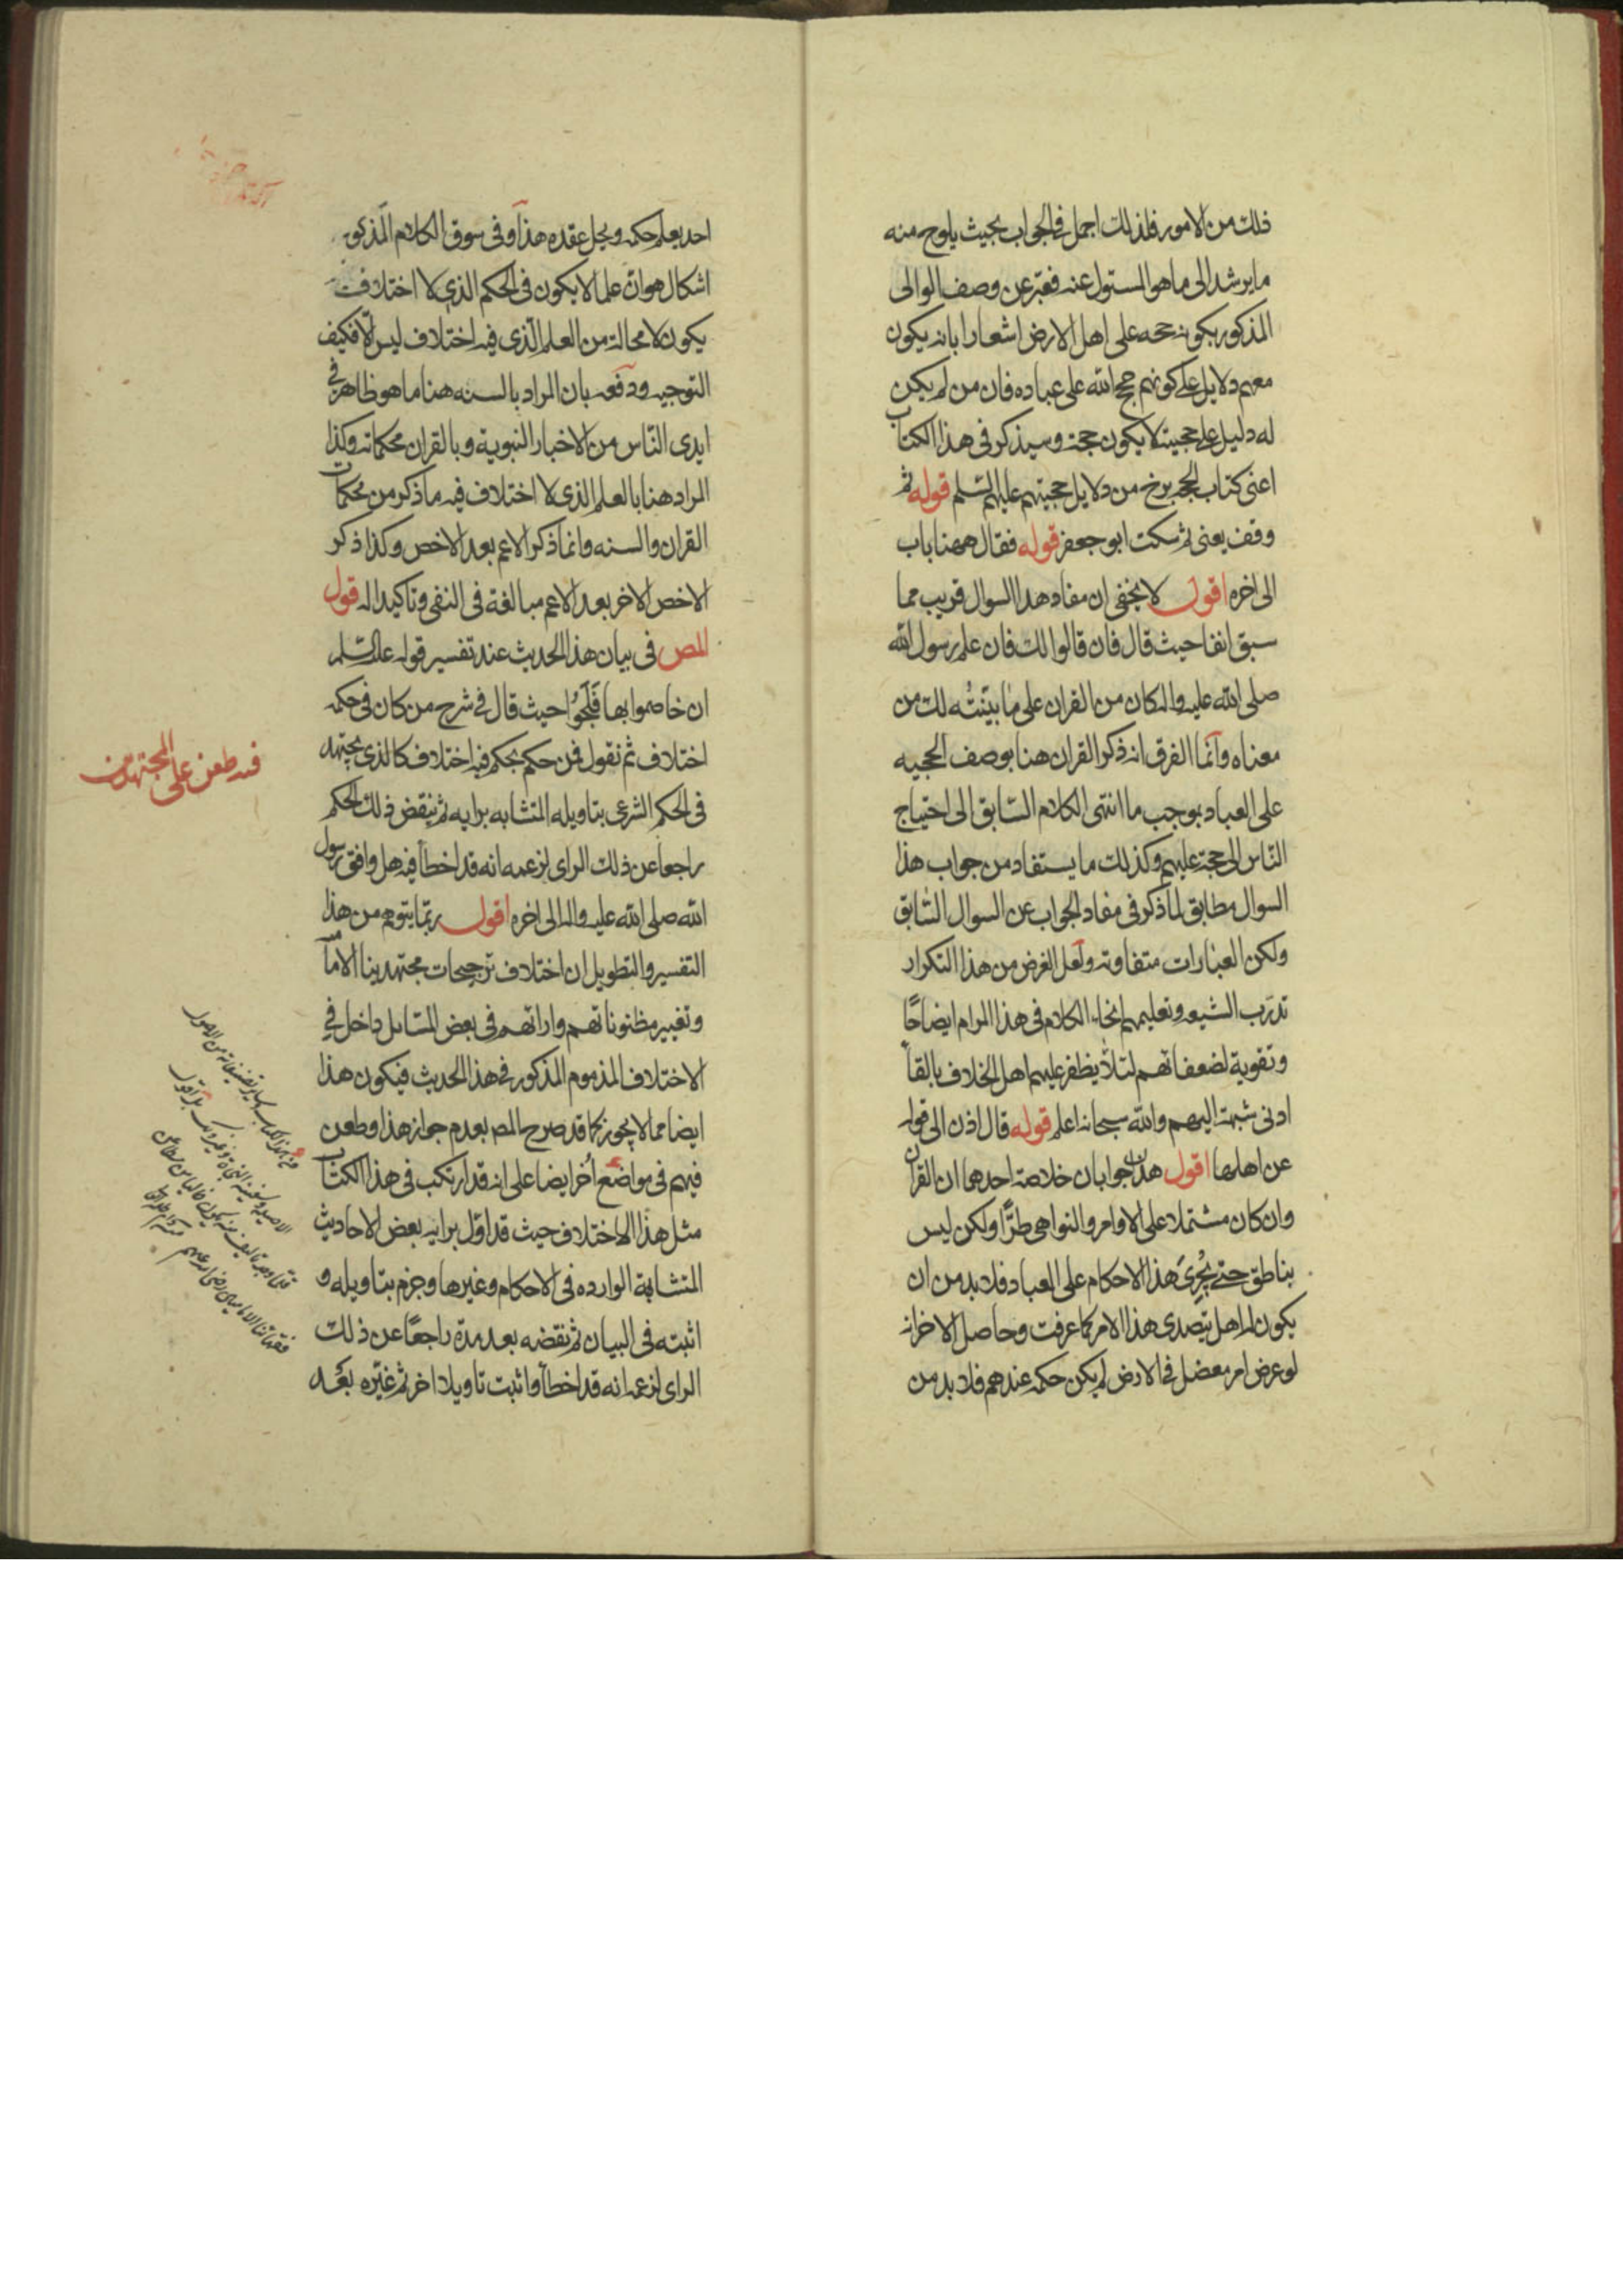 ذلك من الامور فلذلك اجمل فى الجواب بحيث يلوح منه
ما يرشد الى ما هو المسئول عنه فعبر عن وصف الوالى
المذكور بكونه حجه على اهل الارض اشعارا بانه يكون
معهم دلايل على كونهم حجج الله على عباده فان من لم يكن
له دليل على حجيته لا يكون حجة وسيذكر فى هذا الكتاب
اعنى كتاب الحجه برخ من دلايل حجيتهم عليهم السلم قوله ثم
وقف يعنى ثم سكت ابو جعفر قوله فقال ههنا باب
الى اخره اقول لا يخفى ان مفاد هذا السوال قريب مما
سبق انفا حيث قال فان قالوا لك فان علم رسول الله
صلى الله عليه واله كان من القران على ما بينته لك من
معناه وانما الفرق انه ذكر القران هنا بوصف الحجيه
على العباد بموجب ما انتهى الكلام السابق الى احتياج
الناس الى حجة عليهم وكذلك ما يستفاد من جواب هذا
السوال مطابق لما ذكر فى مفاد الجواب عن السوال السابق
ولكن العبارات متفاوته ولعل الغرض من هذا التكرار
تدرب الشيعه وتعليمهم انحاء الكلام فى هذا المرام ايضاحًا
وتقوية لضعفائهم لئلا يظفر عليهم اهل الخلاف بالقاء
ادنى شبهة اليهم والله سبحانه اعلم قوله قال اذن الى قوله
عن اهلها اقول هذان جوابان خلاصة احدهما ان القران
وان كان مشتملا على الاوامر والنواهى طرًّا ولكن ليس
بناطق حتى يُجرِىَ هذا الاحكام على العباد فلا بد من ان
يكون له اهل يتصدى هذا الامر كما عرفت وحاصل الاخر انه
لو عرض امر معضل فى الارض لم يكن حكمه عندهم فلا بد من
احد يعلم حكمه ويحل عقده هذا وفى سوق الكلام المذكور
اشكال هو ان علما لا يكون فى الحكم الذى لا اختلاف
يكون لا محالة من العلم الذى فيه اختلاف ليس الا فكيف
التوجيه ودفعه بان المراد بالسنه هنا ما هو ظاهر فى
ايدى الناس من الاخبار النبوية وبالقران محكماته وكذا
المراد هنا بالعلم الذى لا اختلاف فيه ما ذكر من محكمات
القران والسنه وانما ذكر الاعم بعد الاخص وكذا ذكر
الاخص الاخر بعد الاعم مبالغة فى النفى وتاكيدا له قول
المص فى بيان هذا الحديث عند تفسير قوله عليه السلم
ان خاصموا بها فَلَجُوا حيث قال فى شرح من كان فى حكمه
اختلاف ثم نقول فمن حكم بحكم فيه اختلاف كالذى يجتهد
فى الحكم الشرعى بتاويله المتشابه برايه ثم ينقض ذلك الحكم
راجعا عن ذلك الراى لزعمه انه قد اخطأ فيه هل وافق رسول
الله صلى الله عليه واله الى اخره اقول ربما يتوهم من هذا
التفسير والتطويل ان اختلاف ترجيحات مجتهدينا الامامية
وتغيير مظنوناتهم واراتهم فى بعض المسائل داخل فى
الاختلاف المذموم المذكور فى هذا الحديث فيكون هذا
ايضا مما لا يجوز كما قد صرح المص بعدم جواز هذا وطعن
فيهم فى مواضع اُخر ايضا على انه قد ارتكب فى هذا الكتاب
مثل هذا الاختلاف حيث قد اوّل برايه بعض الاحاديث
المتشابهة الوارده فى الاحكام وغيرها وجزم بتاويله و
اثبته فى البيان ثم نقضه بعد مدة راجعًا عن ذلك
الراى لزعمه انه قد اخطأ واثبت تاويلا اخر ثم غيّره بعد
فيه طعن على المجتهدين